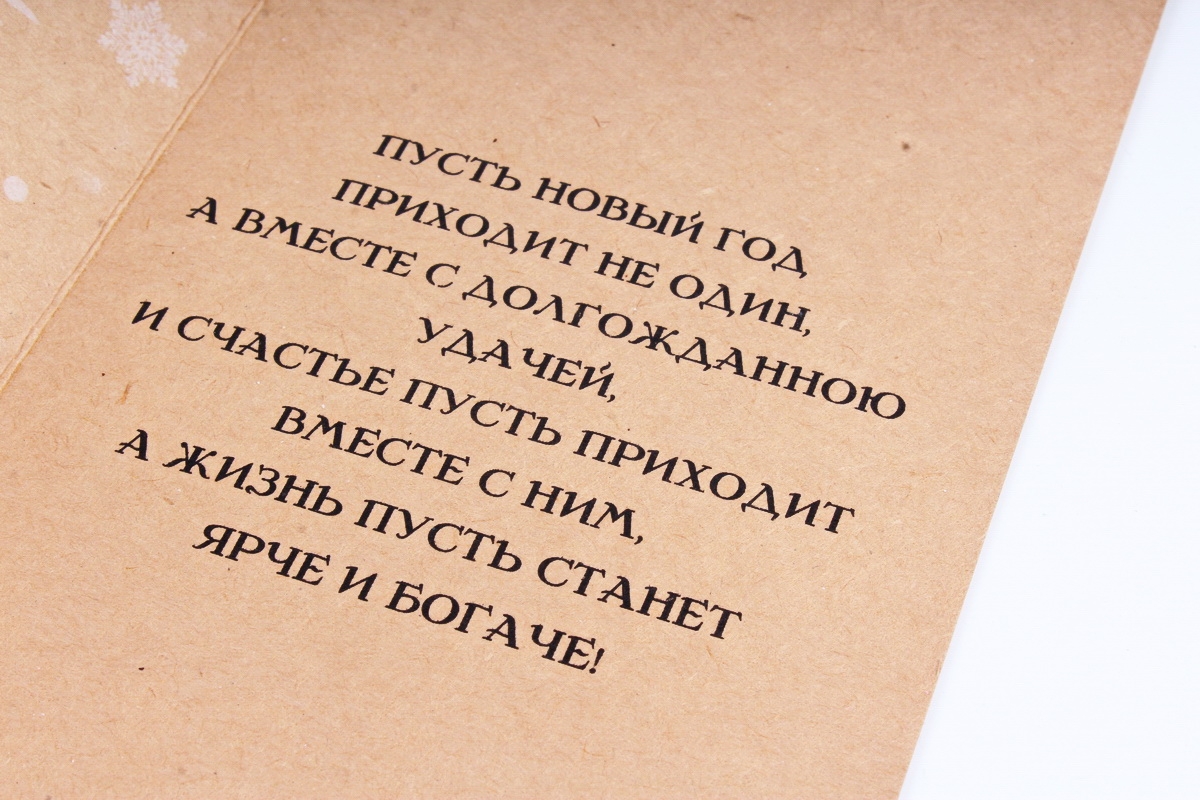 ПУСТЬ НОВЫЙ ГОД
ПРИХОДИТ НЕ ОДИН,
А ВМЕСТЕ С ДОЛГОЖДАННОЮ
УДАЧЕЙ,
И СЧАСТЬЕ ПУСТЬ ПРИХОДИТ
ВМЕСТЕ С НИМ,
А ЖИЗНЬ ПУСТЬ СТАНЕТ
ЯРЧЕ И БОГАЧЕ!